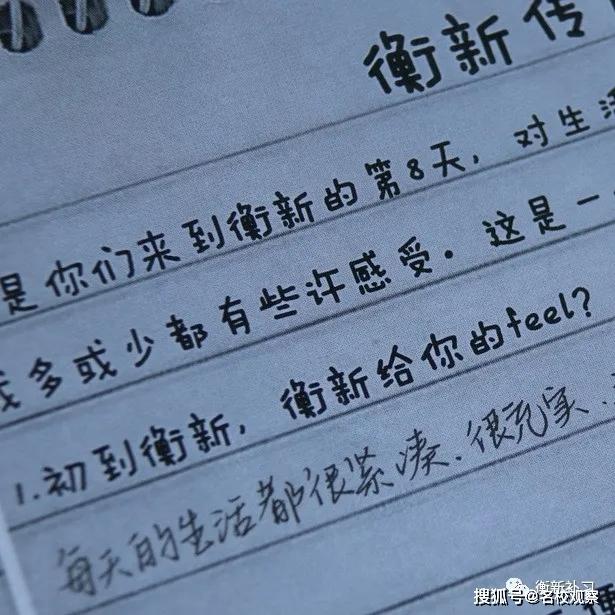 衡新传
是你们来到衡新的第8天，对生活
或多或少都有些许感受。这是一
1.初到衡新，衡新给你的feel？
每天的生活都很紧凑.很充实.
衡新补习
搜狐号@名校观察